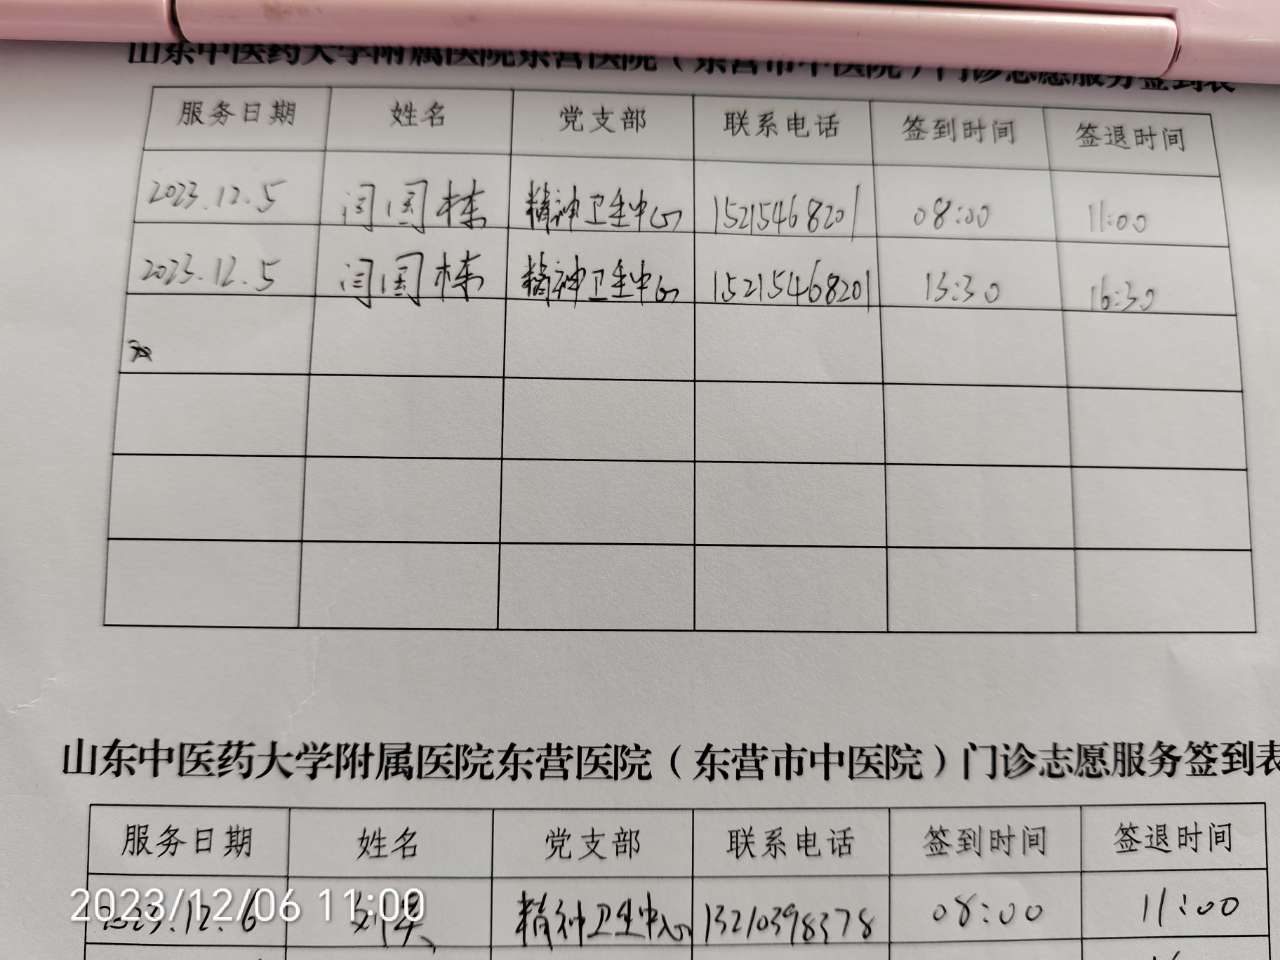 山东中医药大学附属医院东营医院（东营市中医院）门诊志愿服务签到表
服务日期 姓名 党支部 联系电话 签到时间 签退时间
2023.12.5 闫国栋 精神卫生中心 15215468201 08:00 11:00
2023.12.5 闫国栋 精神卫生中心 15215468201 13:30 16:30
山东中医药大学附属医院东营医院（东营市中医院）门诊志愿服务签到表
服务日期 姓名 党支部 联系电话 签到时间 签退时间
2023.12.6 刘 精神卫生中心 13210398378 08:00 11:00
2023/12/06 11:00